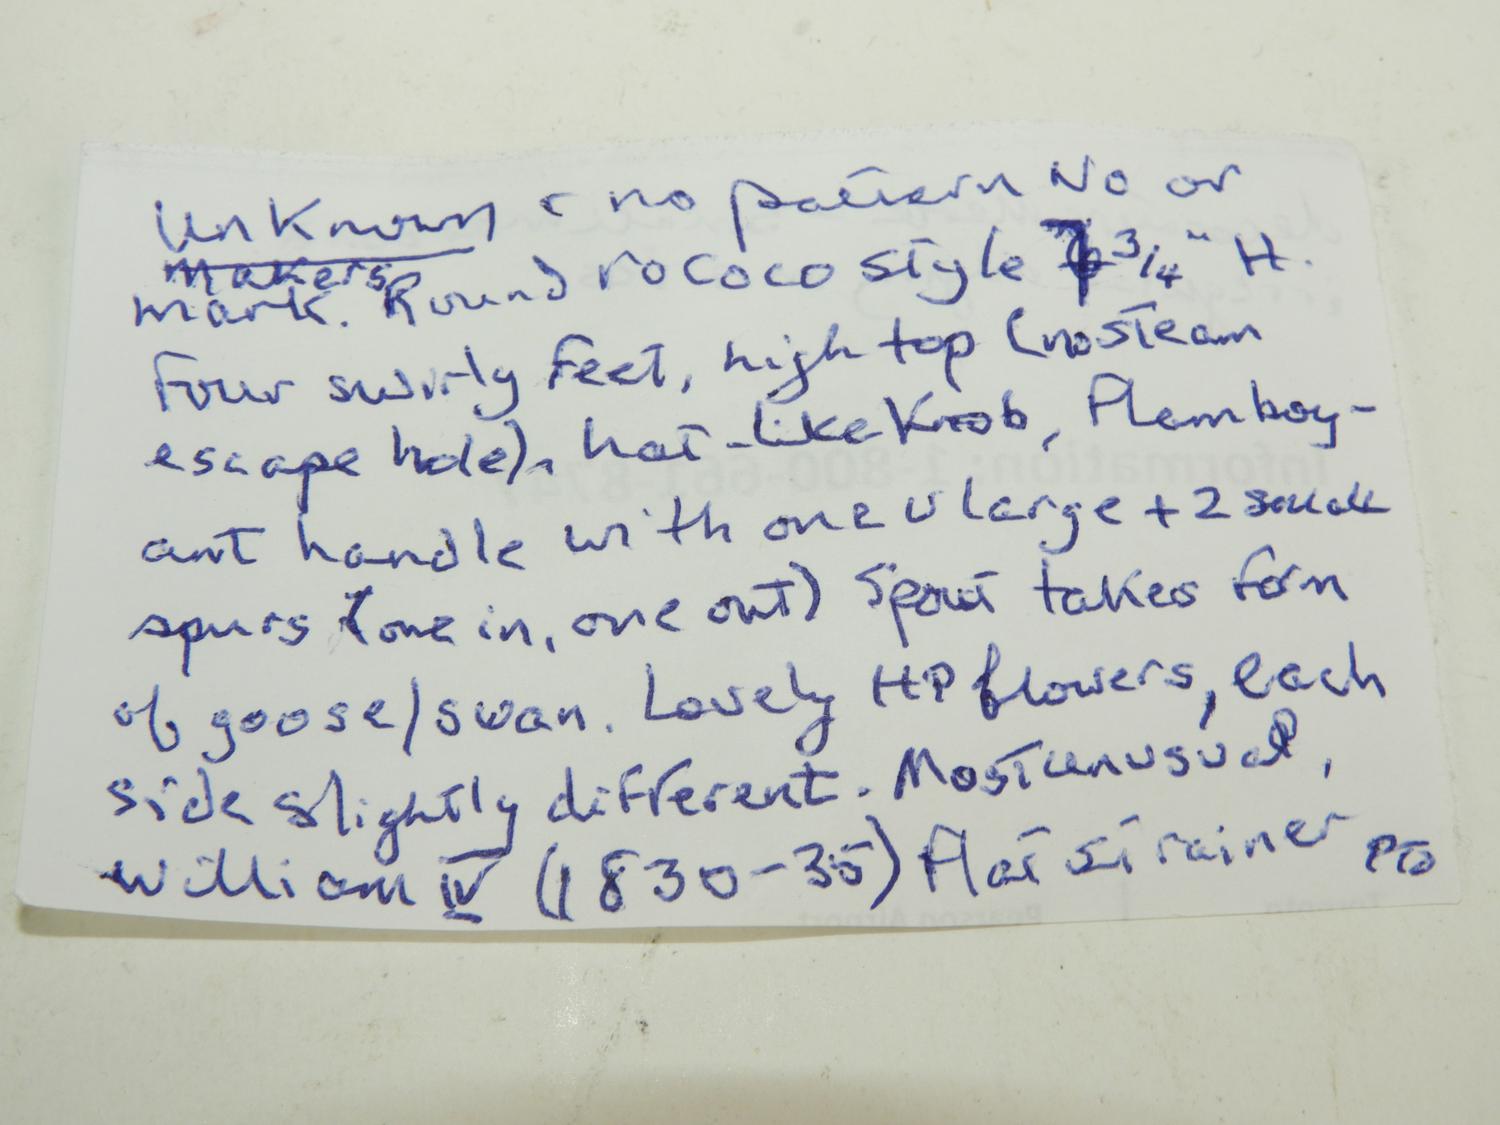 Unknown & no pattern No or
makers
mark. Round rococo style 3/4" H.
Four swirly feet, high top (no steam
escape hole), hat-like Knob, Flamboy-
ant handle with one v large + 2 small
spurs (one in, one out) Spout takes form
of goose/swan. Lovely HP flowers, each
side slightly different. Most unusual,
William IV (1830-35) Flat strainer PTO
Information: 1-800-661-8747
Pearson Airport
Toronto